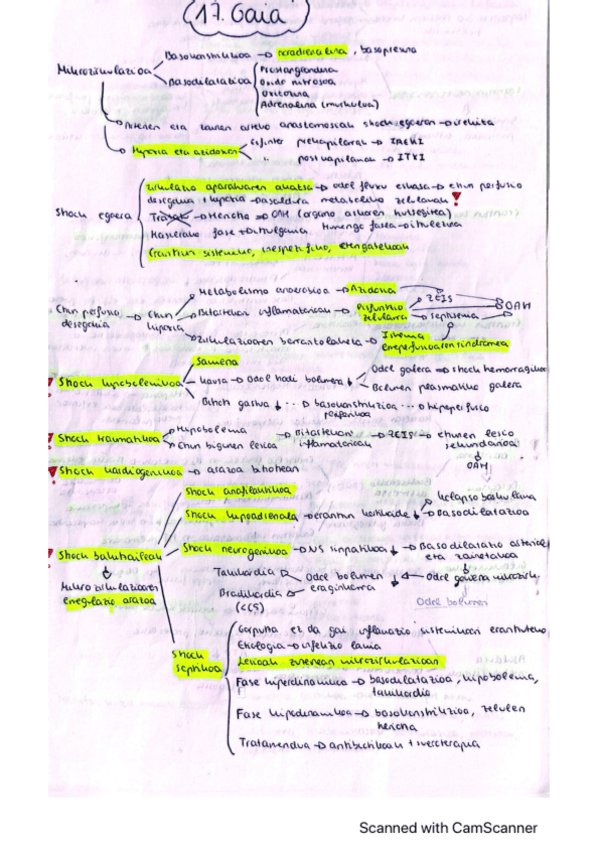 17. Gaia
Mikrozirkulazioa
Basokonstrikzioa → noradrenalina, basopresina
Basodilatazioa
Prostaglandina
Oxido nitrosoa
Oxitozina
Adrenalina (muskuloa)
Arterien eta zainen arteko anastomosiak shock egoeran → irekita
Hipoxia eta azidosia
Esfinter prekapilarrak → IREKI
" postkapilarrak → ITXI
Shock egoera
Zirkulazio aparatuaren akatsa → odol fluxu eskasa → ehun perfusio
desegokia + hipoxia → asaldura metaboliko zelularrak !
Heriotza → OAH (organo askoren hutsegitea)
Hasierako fase → itzulgarria Hurrengo fasea → itzulezina
Erantzun sistemiko, inespezifiko, etengabekoak
Ehun perfusio → Ehun
desegokia hipoxia
Metabolismo anaerobioa → Azidosia
Bitartekari inflamatorioak → Disfuntzio
zelularra
ZEIS
septizemia
OAH
Zirkulazioaren berrantolaketa → Iskemia
erreperfusioaren sindromea
Shock hipobolemikoa
Samina
Kausa → Odol hodi bolumena ↓
Odol galera → shock hemorragikoa
Bolumen plasmatiko galera
Bihotz gastua ↓ ... → basokonstrikzioa ... → hipoperfusioa
periferikoa
Shock traumatikoa
Hipobolemia
Ehun bigunen lesioa
→ Bitartekari
inflamatorioak
→ ZEIS → ehunen lesio
sekundarioa
OAH
Shock kardiogenikoa → arazoa bihotzean
Shock anafilaktikoa
Shock hipoadrenala → erantzun kortikoide ↓
Kolapso baskularra
Basodilatazioa
Shock banatzaileak
Shock neurogenikoa → NS sinpatikoa ↓ → Basodilatazio arteriola
eta zainetakoa
Mikrozirkulazioaren
erregulazio arazoa
Takikardia
Bradikardia
Odol bolumen ↓
eraginkorra
Odol
Odol bolumen
Shock
septikoa
Gorputza ez da gai inflamazio sistemikoari erantzuteko
Etiologia → infekzio larria
Lesioak zuzenean mikrozirkulazioan
Fase hiperdinamikoa → basodilatazioa, hipobolemia,
takikardia
Fase hipodinamikoa → basokonstrikzioa, zelulen
heriotza
Tratamendua → antibiotikoak + sueroterapia
Scanned with CamScanner